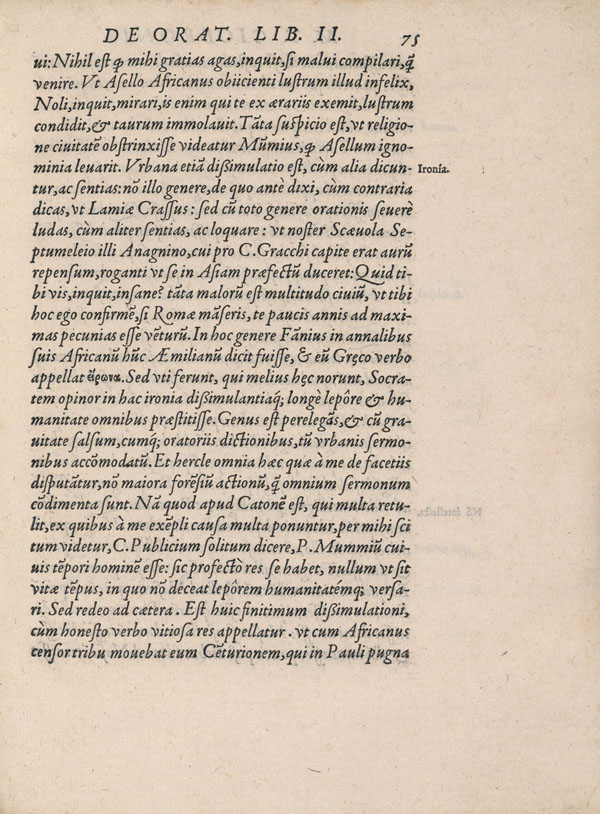 DE ORAT. LIB. II. 75
ui: Nihil est ꝙ mihi gratias agas, inquit, si malui compilari, q̃
venire. Vt Asello Africanus obiicienti lustrum illud infelix,
Noli, inquit, mirari, is enim qui te ex ærariis exemit, lustrum
condidit, & taurum immolauit. Tãta suspicio est, vt religio-
ne ciuitatẽ obstrinxisse videatur Mũmius, ꝙ Asellum igno-
minia leuarit. Vrbana etiã dissimulatio est, cùm alia dicun-
tur, ac sentias: nõ illo genere, de quo antè dixi, cùm contraria
dicas, vt Lamiæ Crassus: sed cũ toto genere orationis seuerè
ludas, cùm aliter sentias, ac loquare: vt noster Scæuola Se-
ptumeleio illi Anagnino, cui pro C. Gracchi capite erat aurũ
repensum, roganti vt se in Asiam præfectũ duceret: Quid ti-
bi vis, inquit, insane? tãta malorũ est multitudo ciuiũ, vt tibi
hoc ego confirmẽ, si Romæ mãseris, te paucis annis ad maxi-
mas pecunias esse vẽturũ. In hoc genere Fãnius in annalibus
suis Africanũ hũc Æmilianũ dicit fuisse, & eũ Gręco verbo
appellat εἴρωνα. Sed vti ferunt, qui melius hęc norunt, Socra-
tem opinor in hac ironia dissimulantiaq; longè lepôre & hu-
manitate omnibus præstitisse. Genus est perelegãs, & cũ gra-
uitate salsum, cumq; oratoriis dictionibus, tũ vrbanis sermo-
nibus accõmodatũ. Et hercle omnia hæc quæ à me de facetiis
disputãtur, nõ maiora forẽsiũ actionũ, q̃ omnium sermonum
cõdimenta sunt. Nã quod apud Catonẽ est, qui multa retu-
lit, ex quibus à me exẽpli causa multa ponuntur, per mihi sci
tum videtur, C. Publicium solitum dicere, P. Mummiũ cui-
uis tẽpori hominẽ esse: sic profecto res se habet, nullum vt sit
vitæ tẽpus, in quo nõ deceat lepôrem humanitatémq; versa-
ri. Sed redeo ad cætera. Est huic finitimum dissimulationi,
cùm honesto verbo vitiosa res appellatur. vt cum Africanus
censor tribu mouebat eum Cẽturionem, qui in Pauli pugna
Ironía.